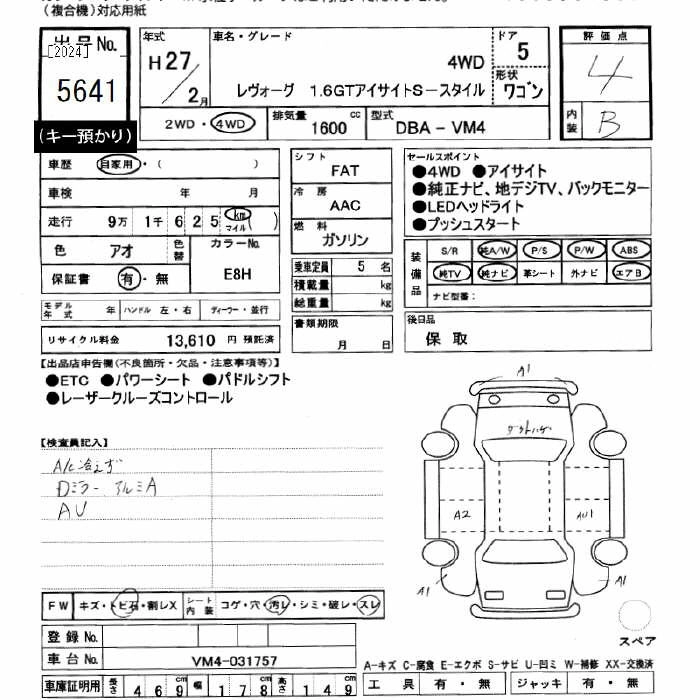 (複合機)対応用紙
出品No.
[2024]
5641
(キー預かり)
年式
H27/2月
車名・グレード
4WD
レヴォーグ 1.6GTアイサイトS－スタイル
ドア
5
形状
ワゴン
評価点
4
内装
B
2WD・4WD
排気量 1600 cc
型式 DBA－VM4
車歴 自家用・( )
車検 年 月
走行 9万 1千 6 2 5 km マイル ( )
色 アオ 色替
カラーNo.
E8H
保証書 有・無
モデル年式 年 ハンドル 左・右 ディーラー・並行
リサイクル料金 13,610 円 預託済
シフト
FAT
冷房
AAC
燃料
ガソリン
乗車定員 5 名
積載量 kg
総重量 kg
書類期限
月 日
セールスポイント
●4WD ●アイサイト
●純正ナビ、地デジTV、バックモニター
●LEDヘッドライト
●プッシュスタート
装備品
S/R 純A/W P/S P/W ABS
純TV 純ナビ 革シート 外ナビ エアB
ナビ型番：
後日品
保取
【出品店申告欄(不良箇所・欠品・注意事項等)】
●ETC ●パワーシート ●パドルシフト
●レーザークルーズコントロール
【検査員記入】
A/C冷えず
Dミラー アルミA
AU
A1
A2
AU1
A1
A1
FW キズ・トビ石・割レX
シート内装 コゲ・穴・汚レ・シミ・破レ・スレ
登録No.
車台No. VM4-031757
車庫証明用 長さ 4 6 9 cm 幅 1 7 8 cm 高さ 1 4 9 cm
スペア
A-キズ C-腐食 E-エクボ S-サビ U-凹ミ W-補修 XX-交換済
工具 有・無 ジャッキ 有・無